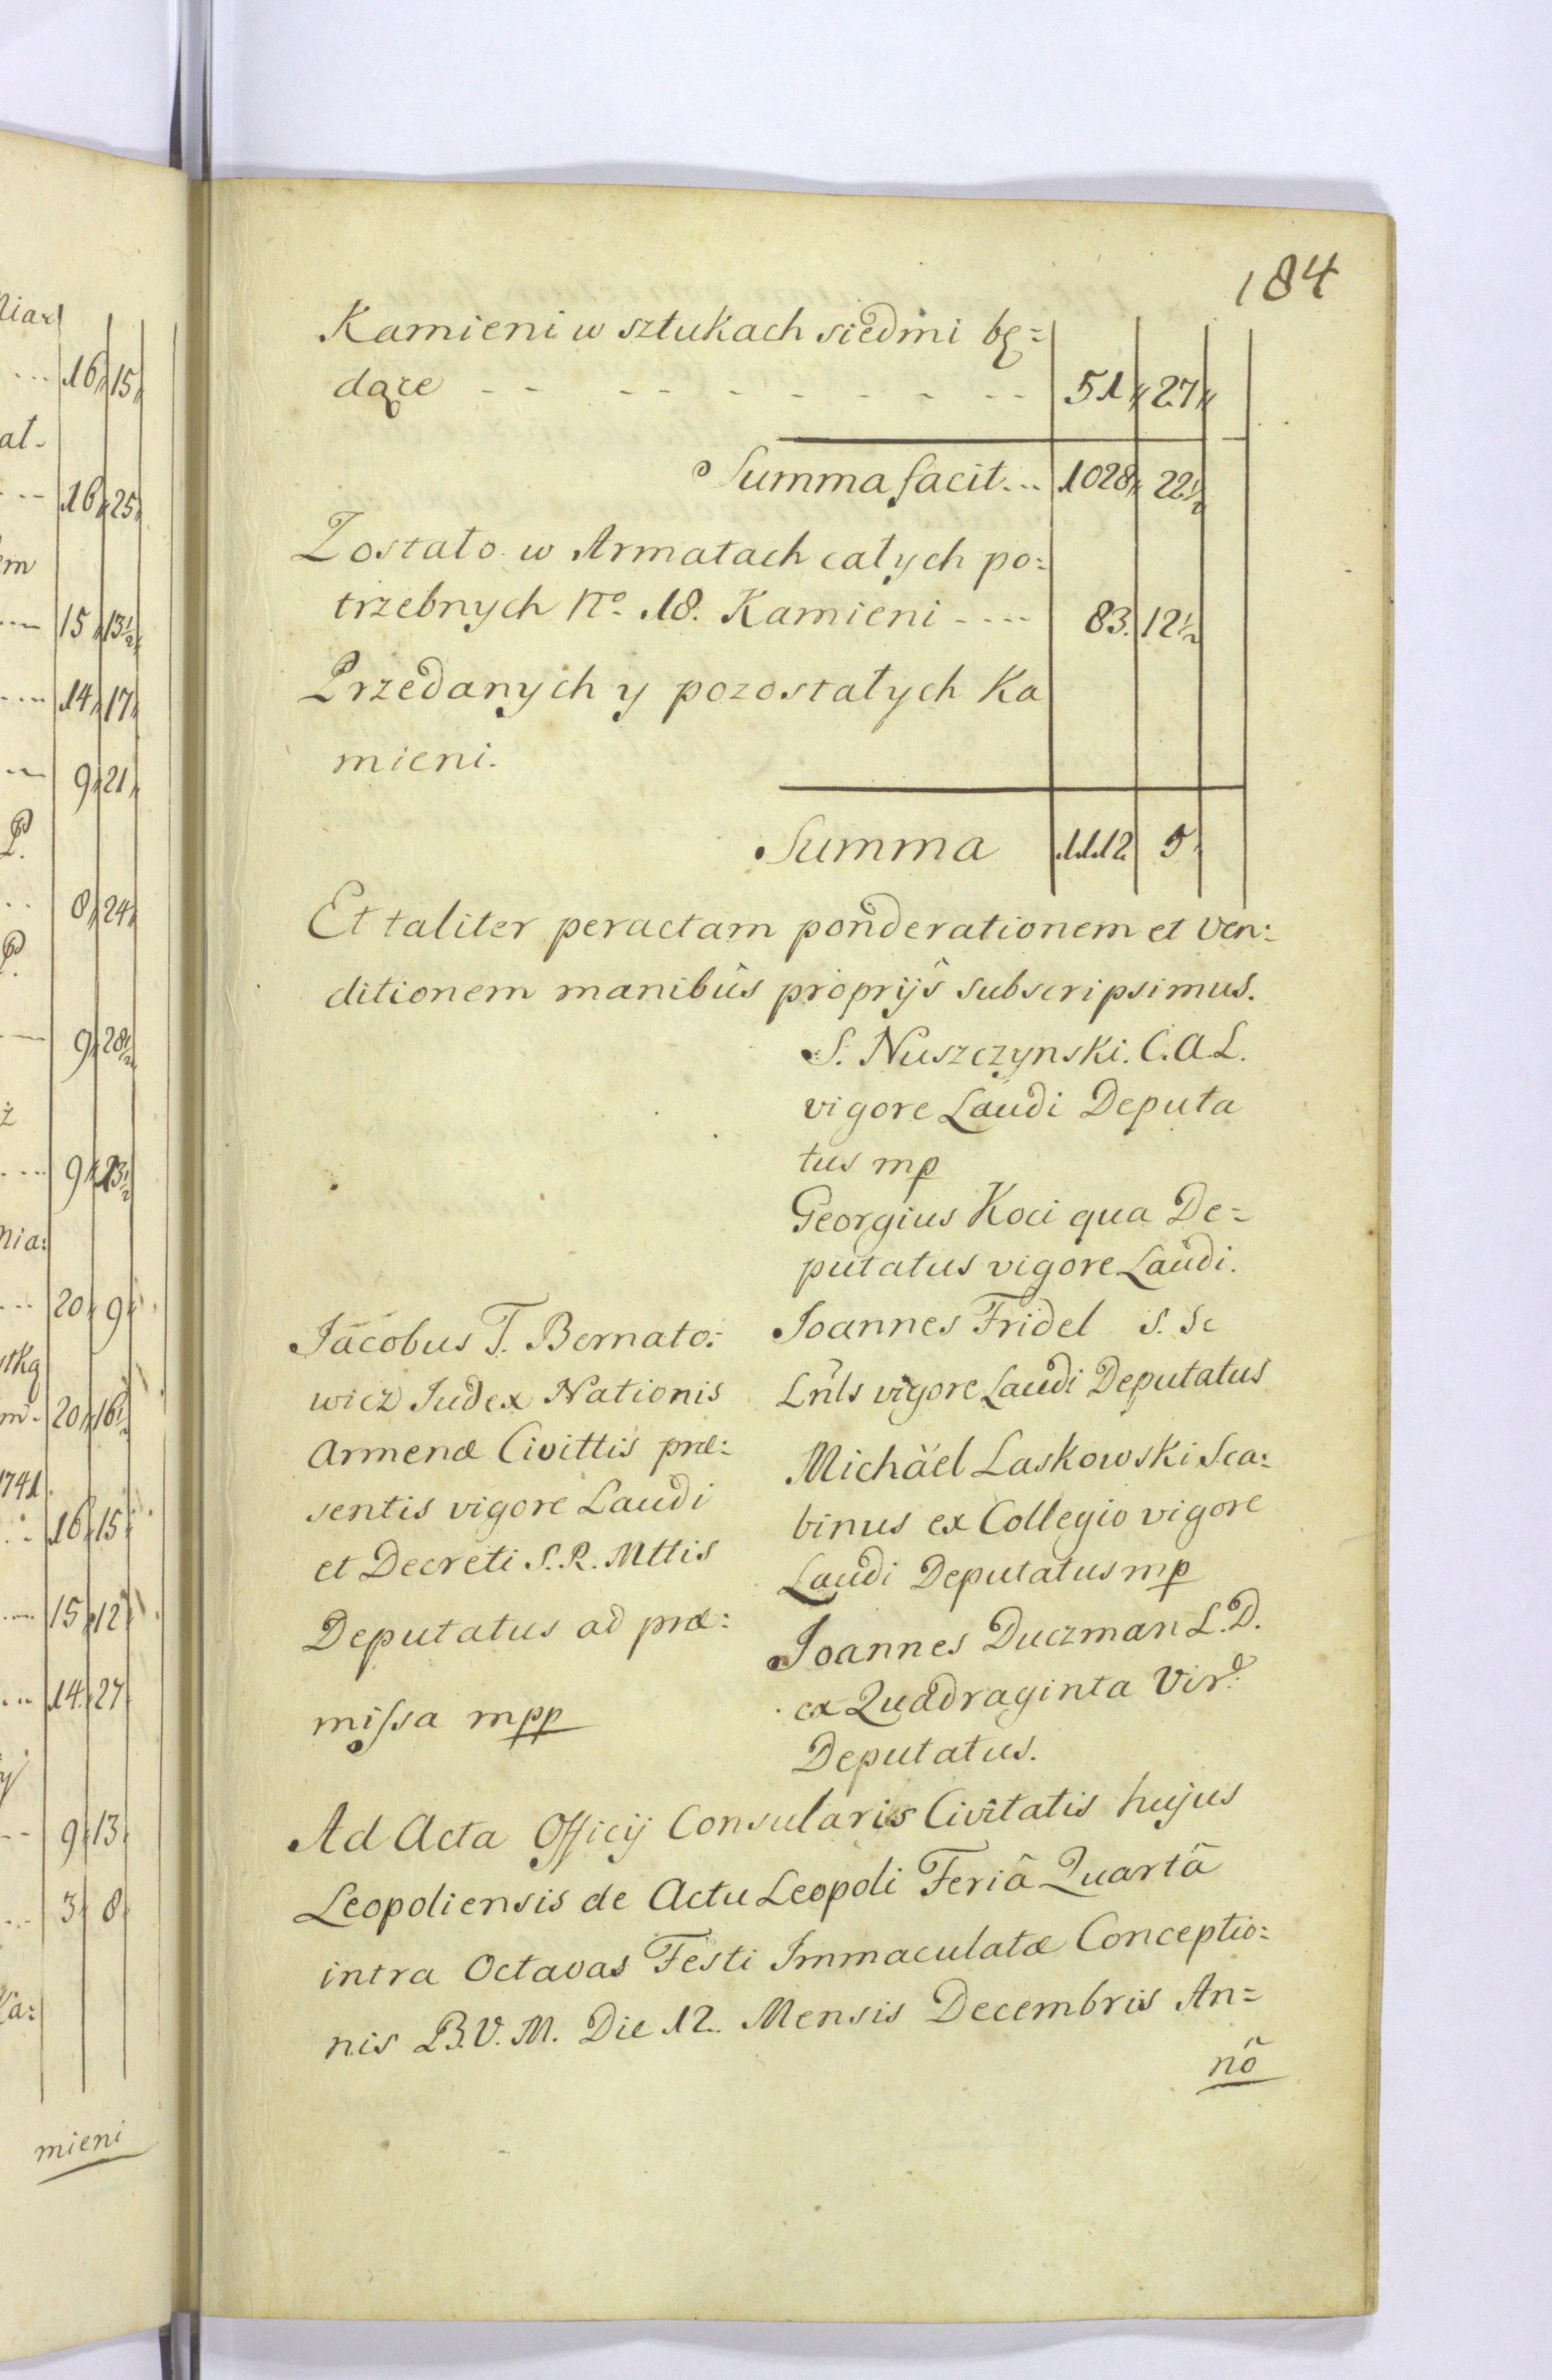 184
Kamieni w sztukach siedmi bę=
dące - - - - - - - - - 51 " 27 "
Summa facit... 1028 " 22½
Zostało w Armatach całych po=
trzebnych No. 18. Kamieni - - - - 83. 12½
Przedanych y pozostałych Ka
mieni.
Summa 1112 5
Et taliter peractam ponderationem et ven=
ditionem manibûs proprijs subscripsimus.
S. Nuszczynski. C.A.L.
vigore Laudi Deputa
tus mp
Georgius Koci qua De=
putatus vigore Laudi.
Joannes Fridel S. Sc
Lñls vigore Laudi Deputatus
Michäel Laskowski Sca:
binus ex Collegio vigore
Laudi Deputatus mp
Joannes Duczman L.D.
ex Quadraginta Vir.
Deputatus.
Jacobus T. Bernato:
wicz Judex Nationis
Armenæ Civittis præ:
sentis vigore Laudi
et Decreti S.R. Mttis
Deputatus ad præ:
missa mpp
Ad Acta Officij Consularis Civitatis hujus
Leopoliensis de Actu Leopoli Feriâ Quartâ
intra Octavas Festi Immaculatæ Conceptio:
nis B.V.M. Die 12. Mensis Decembris An=
nô
16 " 15 "
at-
16 " 25 "
em
15 " 13½
14 " 17 "
9 " 21 "
P.
8 " 24 "
P.
9 " 28½
ż
9 " 23½
nia:
20 " 9 "
tkg
20 " 16½
1741.
16 " 15 "
15 " 12 "
14. " 27
y
9 " 13
3 " 8
Ka:
mieni